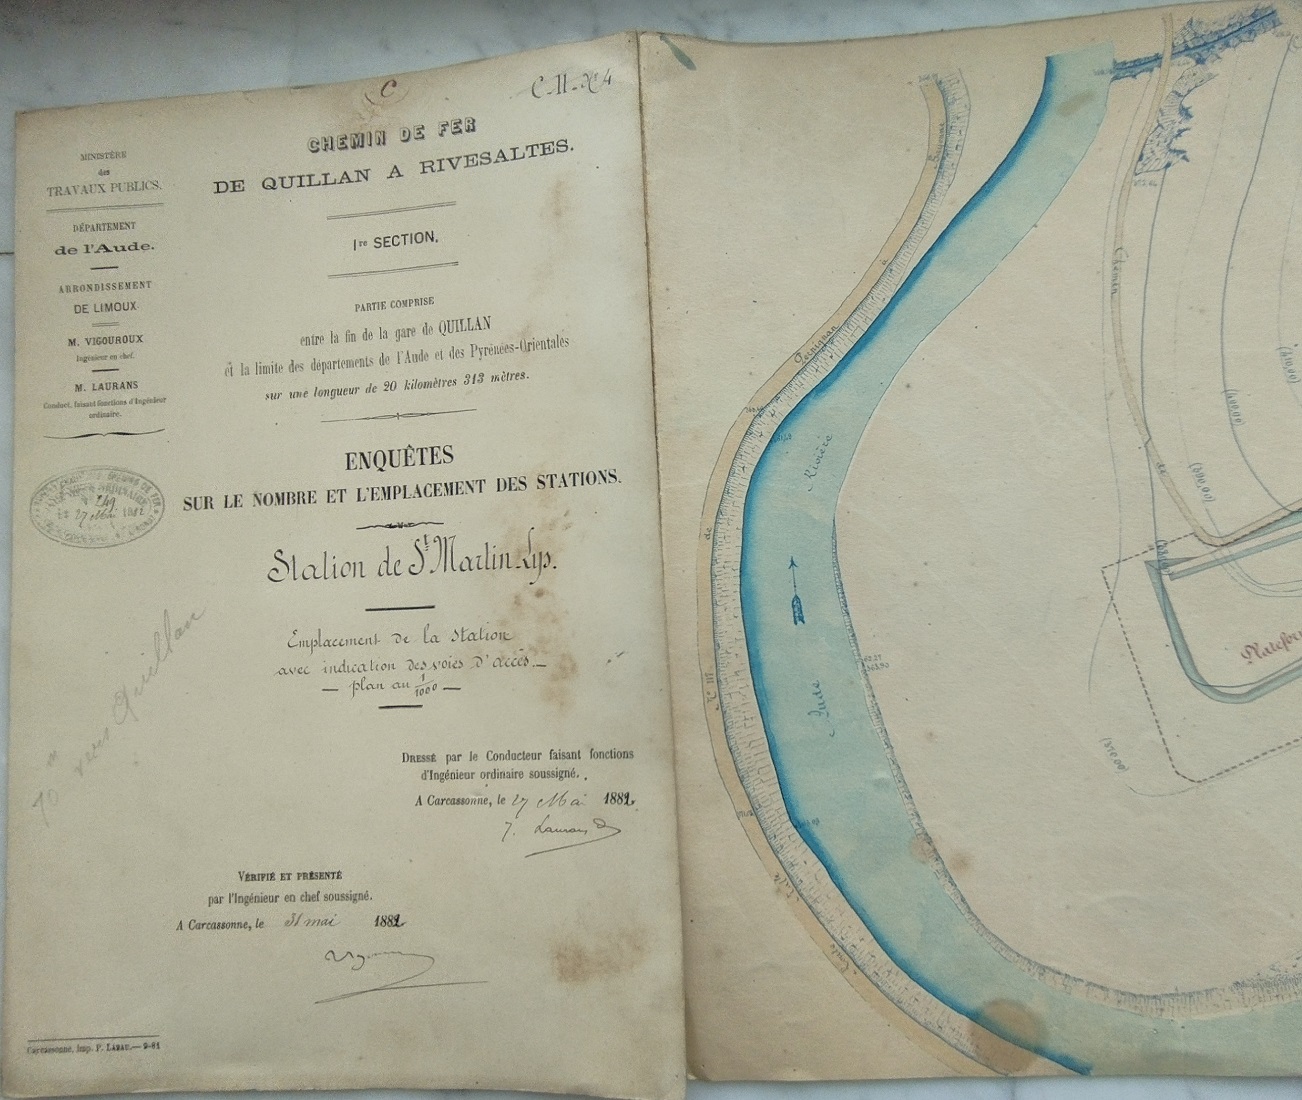 C
C-11-N°4
CHEMIN DE FER
DE QUILLAN A RIVESALTES.
MINISTÈRE
des
TRAVAUX PUBLICS.
DÉPARTEMENT
de l'Aude.
ARRONDISSEMENT
DE LIMOUX
M. VIGOUROUX
Ingénieur en chef.
M. LAURANS
Conduct. faisant fonctions d'Ingénieur
ordinaire.
1re SECTION.
PARTIE COMPRISE
entre la fin de la gare de QUILLAN
et la limite des départements de l'Aude et des Pyrénées-Orientales
sur une longueur de 20 kilomètres 313 mètres.
ENQUÊTES
SUR LE NOMBRE ET L'EMPLACEMENT DES STATIONS.
249
27 Mai 1882
Station de St Martin Lys.
Emplacement de la station
avec indication des voies d'accès.
plan au 1/1000
vers Quillan
DRESSÉ par le Conducteur faisant fonctions
d'Ingénieur ordinaire soussigné.
A Carcassonne, le 27 Mai 1882
J. Laurans
VÉRIFIÉ ET PRÉSENTÉ
par l'Ingénieur en chef soussigné.
A Carcassonne, le 31 mai 1882
Carcassonne, Imp. P. LABAU.— 9-81
à
Perpignan
de
Route
Rivière
Aude
Chemin
de
(410,00)
(400,00)
(400,00)
(370,00)
Platefor